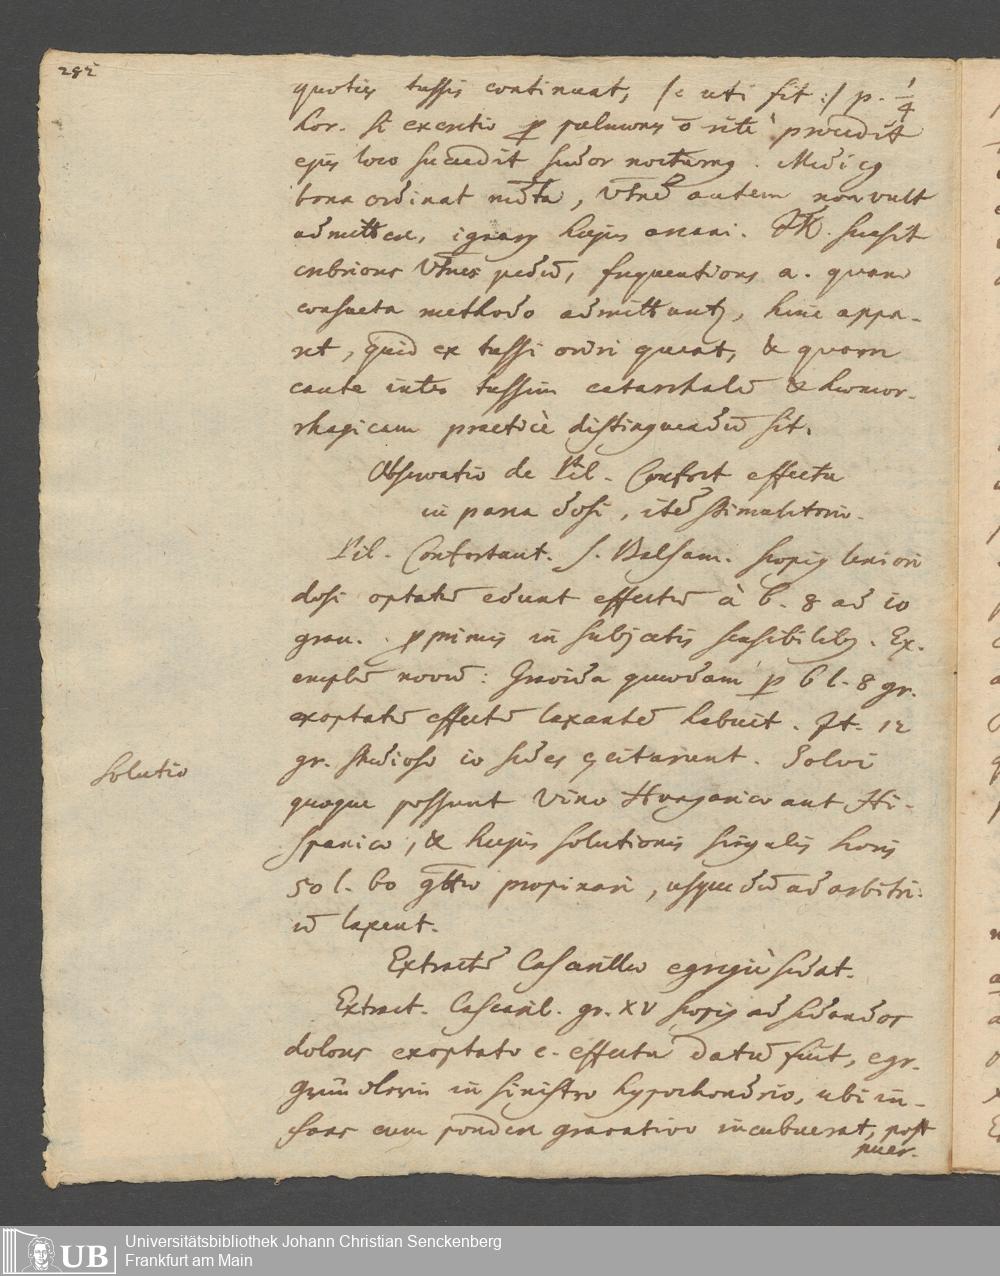 282
quoties tussis continuat, /: uti fit :/ p. 1/4
hor. si excretio p pulmones o rite procedit
ejus loco succedit sudor nocturnq. Medicq
bona ordinat multa, autem non vult
admittere, ignarq hujus arcani. suasit
crebriores pedum, frequentiores a. quam
consueta methodo admittuntq, hinc appa-
ret, quid ex tussi oriri queat, & quam
caute inter tussim catarrhalem & haemor-
rhagicam practicè distinguendum sit.
Observatio de Pil. Confort effectu
in parva dosi, item Stimulatorio.
Pil. Confortant. s. Balsam. sæpiq leniori
dosi optatum edunt effectum à 6. 8 ad 10
gran. pprimis in subjectis sensibilibq. Ex-
emplum novum: Gravida quædam p 6 l. 8 gr.
exoptatum effectum laxantem habuit. It. 12
gr. studioso 10 sedes
Solutio
Solvi
quoque possunt Vino Hungarico aut Hi-
spanico, & hujus solutionis singulis horis
50 l. 60 gtt propinari, usque dum ad arbitri-
um laxent.
Extractum Cascarillæ egregiè sedat.
Extract. Cascaril. gr. XV sæpiq ad sedandos
dolores exoptato c. effectu datum fuit, egr.
in sinistro hypochondrio, ubi in-
fans cum pondere gravativo incubuerat, post
puer-
Universitätsbibliothek Johann Christian Senckenberg
Frankfurt am Main
UB